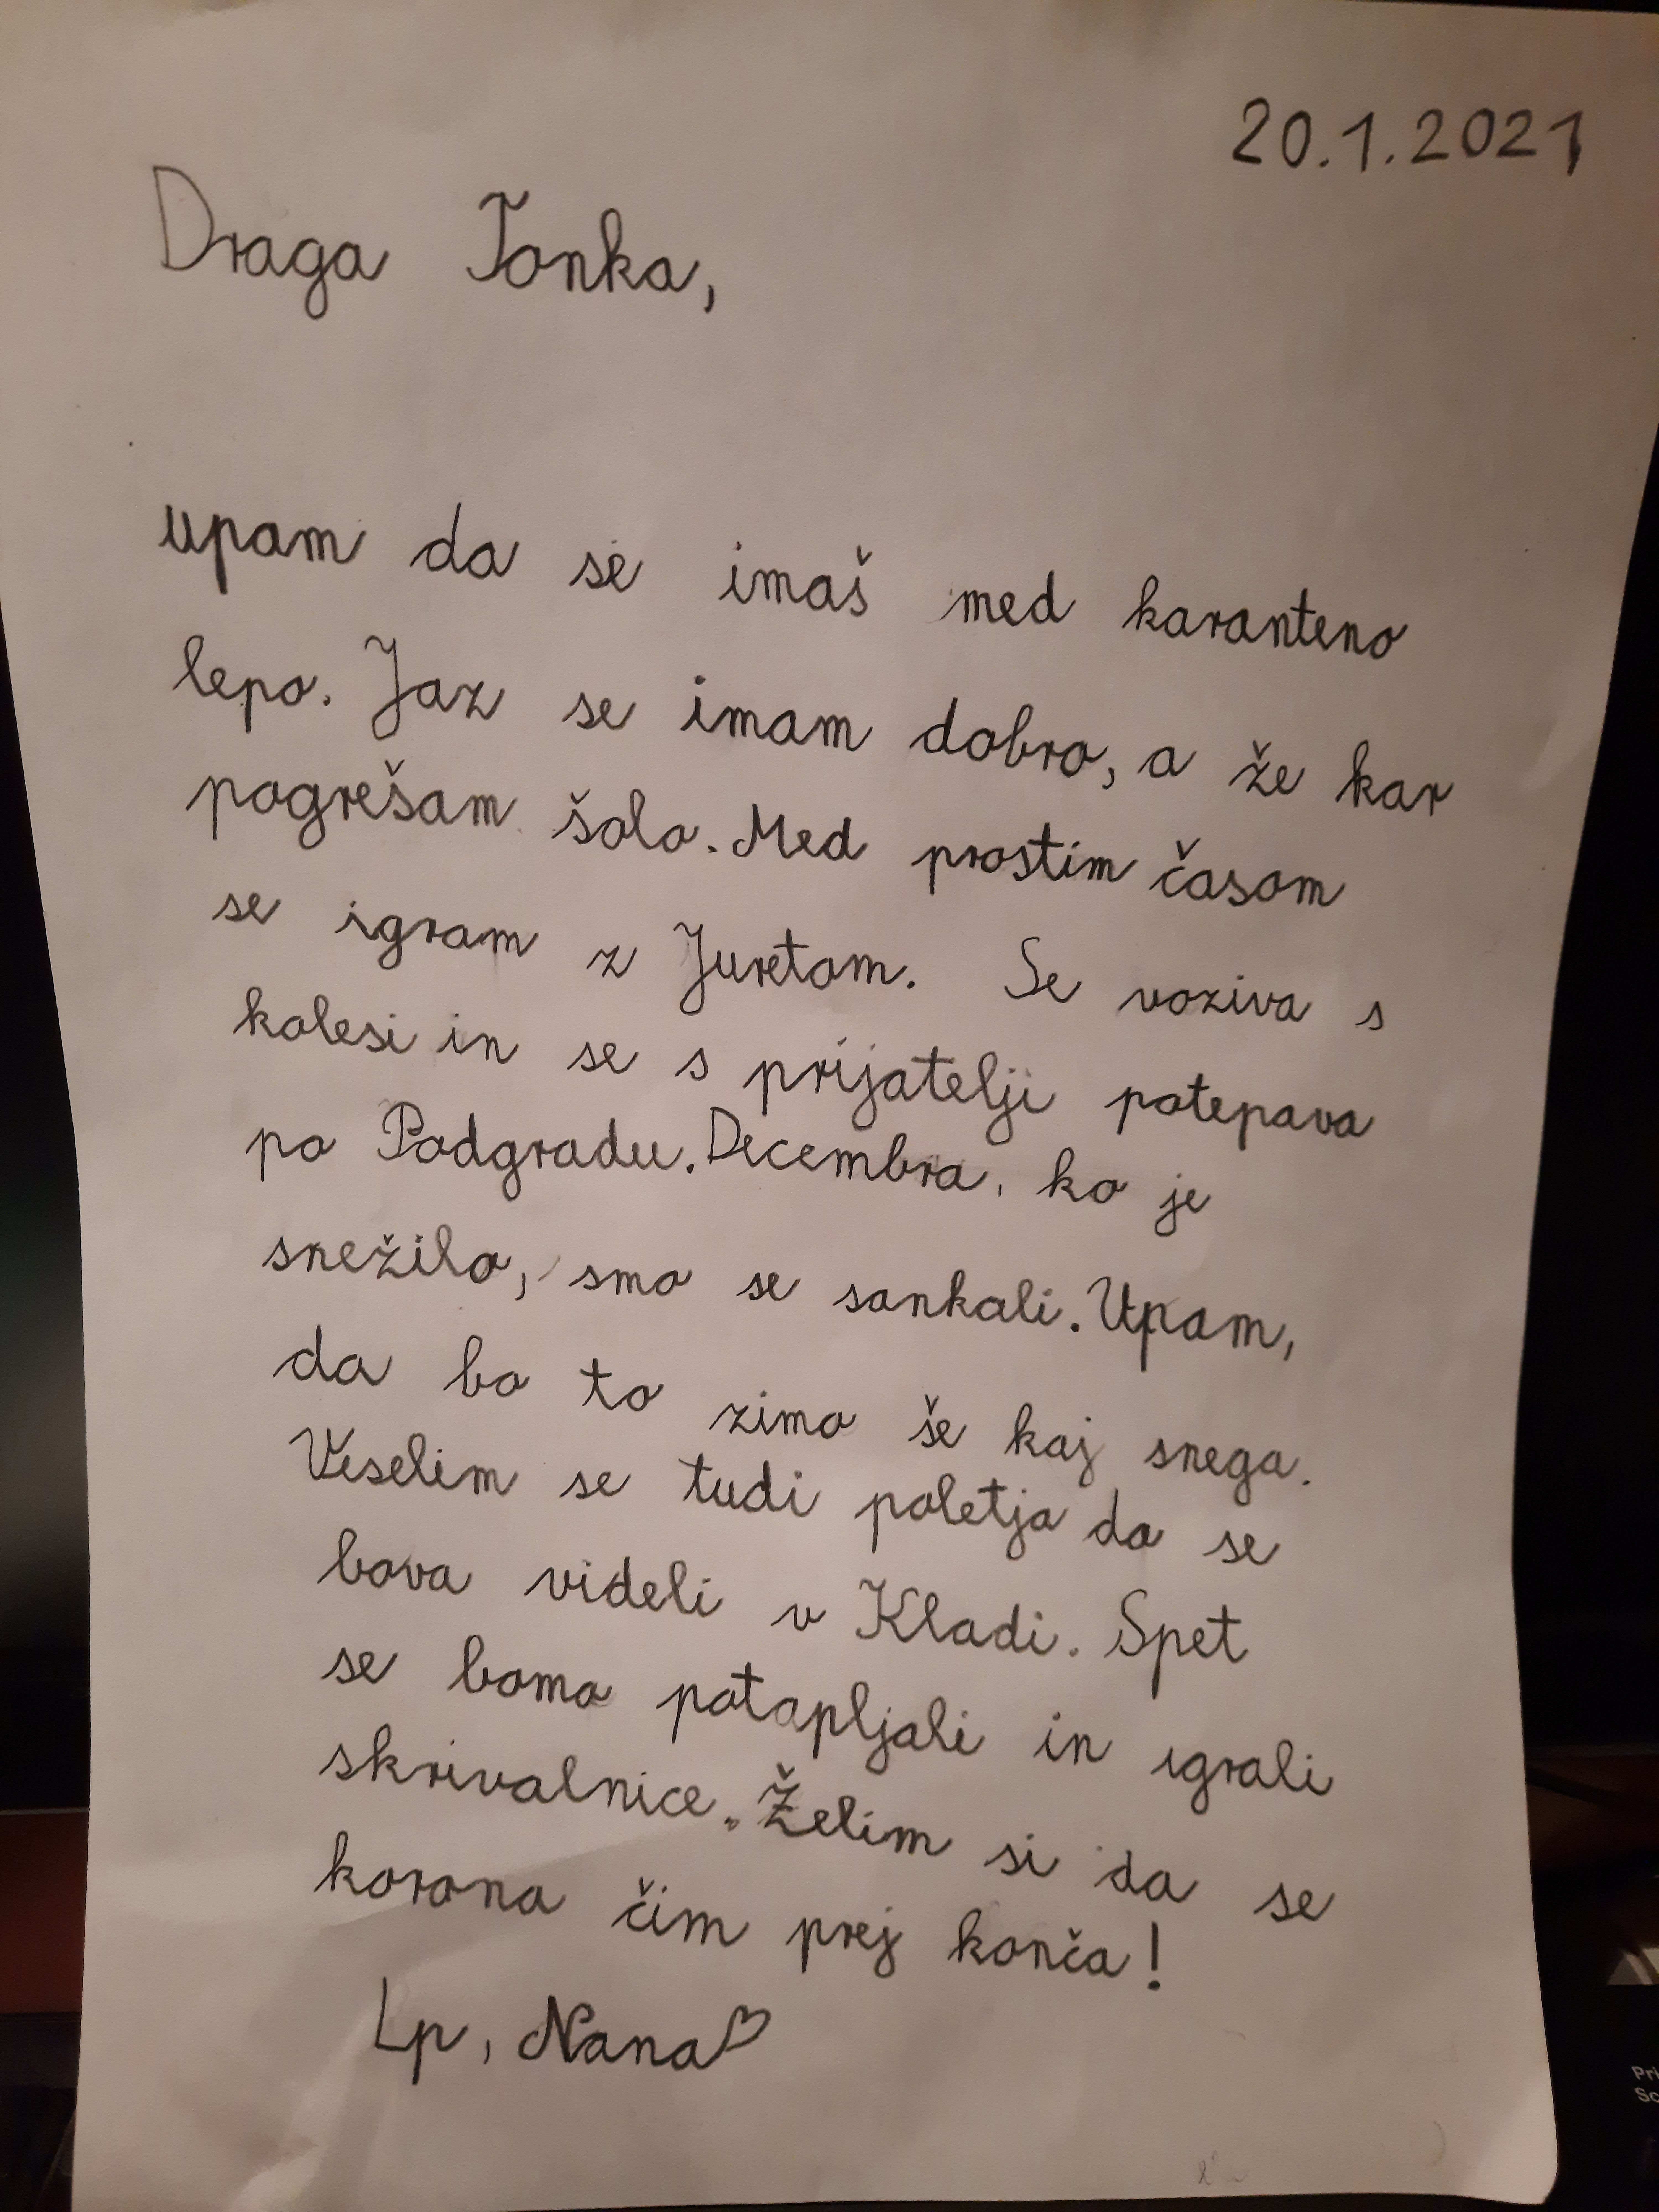 20.1.2021
Draga Tonka,
upam da se imaš med karanteno
lepo. Jaz se imam dobro, a že kar
pogrešam šolo. Med prostim časom
se igram z Juretom. Se voziva s
kolesi in se s prijatelji potepava
po Podgradu. Decembra, ko je
snežilo, smo se sankali. Upam,
da bo to zimo še kaj snega.
Veselim se tudi poletja da se
bova videli v Kladi. Spet
se bomo potapljali in igrali
skrivalnice. Želim si da se
korona čim prej konča!
Lp, Nana♡